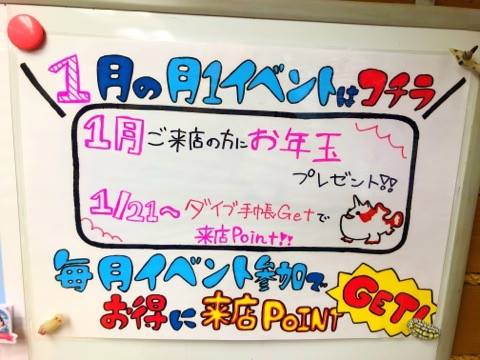 1月の月1イベントはコチラ
1月ご来店の方にお年玉
プレゼント!!
1/21〜ダイブ手帳Getで
来店Point!!
毎月イベント参加で
お得に来店POINT GET!